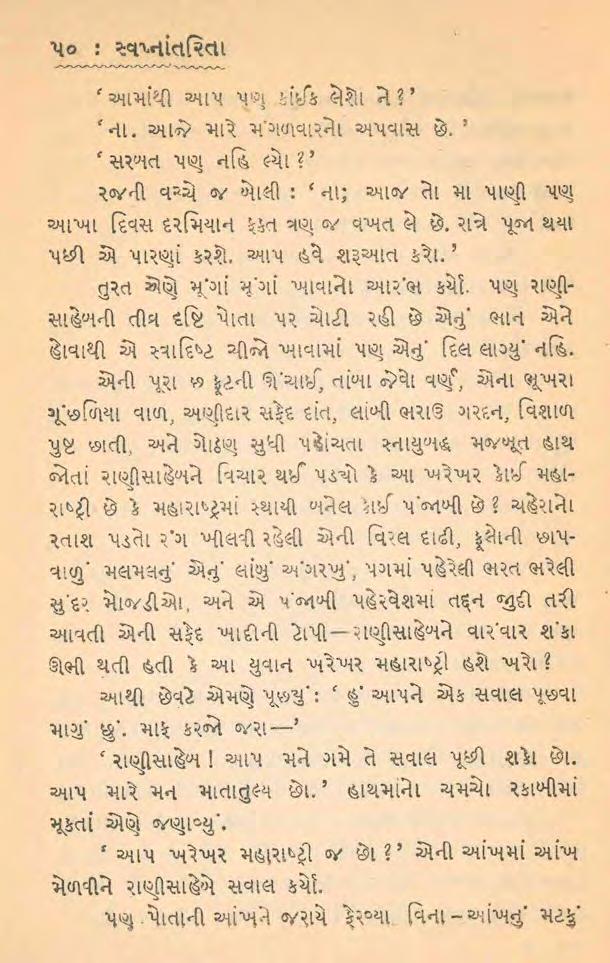 ૫૦ : સ્વપ્નાંતરિતા
‘ આમાંથી આપ પણ કાંઈક લેશો ને ?’
‘ ના. આજે મારે મંગળવારનો અપવાસ છે. ’
‘ સરબત પણ નહિ લ્યો ?’
રજની વચ્ચે જ બોલી : ‘ ના; આજ તો મા પાણી પણ
આખા દિવસ દરમિયાન ફકત ત્રણ જ વખત લે છે. રાત્રે પૂજા થયા
પછી એ પારણાં કરશે. આપ હવે શરૂઆત કરો. ’
તુરત એણે મૂંગાં મૂંગાં ખાવાનો આરંભ કર્યો. પણ રાણી-
સાહેબની તીવ્ર દૃષ્ટિ પોતા પર ચોટી રહી છે એનું ભાન એને
હોવાથી એ સ્વાદિષ્ટ ચીજો ખાવામાં પણ એનું દિલ લાગ્યું નહિ.
એની પૂરા છ ફૂટની ઊંચાઈ, તાંબા જેવો વર્ણ, એના ભૂખરા
ગૂંછળિયા વાળ, અણીદાર સફેદ દાંત, લાંબી ભરાઉ ગરદન, વિશાળ
પુષ્ટ છાતી, અને ગોઠણ સુધી પહોંચતા સ્નાયુબદ્ધ મજબૂત હાથ
જોતાં રાણીસાહેબને વિચાર થઈ પડ્યો કે આ ખરેખર કોઈ મહા-
રાષ્ટ્રી છે કે મહારાષ્ટ્રમાં સ્થાયી બનેલ કોઈ પંજાબી છે ? ચહેરાનો
રતાશ પડતો રંગ ખીલવી રહેલી એની વિરલ દાઢી, ફૂલોની છાપ-
વાળું મલમલનું એનું લાંબું અંગરખું, પગમાં પહેરેલી ભરત ભરેલી
સુંદર મોજડીઓ, અને એ પંજાબી પહેરવેશમાં તદ્દન જુદી તરી
આવતી એની સફેદ ખાદીની ટોપી—રાણીસાહેબને વારંવાર શંકા
ઊભી થતી હતી કે આ યુવાન ખરેખર મહારાષ્ટ્રી હશે ખરો ?
આથી છેવટે એમણે પૂછયું : ‘ હું આપને એક સવાલ પૂછવા
માગું છું. માફ કરજો જરા—’
‘ રાણીસાહેબ ! આપ મને ગમે તે સવાલ પૂછી શકો છો.
આપ મારે મન માતાતુલ્ય છો. ’ હાથમાંનો ચમચો રકાબીમાં
મૂકતાં એણે જણાવ્યું.
‘ આપ ખરેખર મહારાષ્ટ્રી જ છો ?’ એની આંખમાં આંખ
મેળવીને રાણીસાહેબે સવાલ કર્યો.
પણ પોતાની આંખને જરાયે ફેરવ્યા વિના – આંખનું મટકું